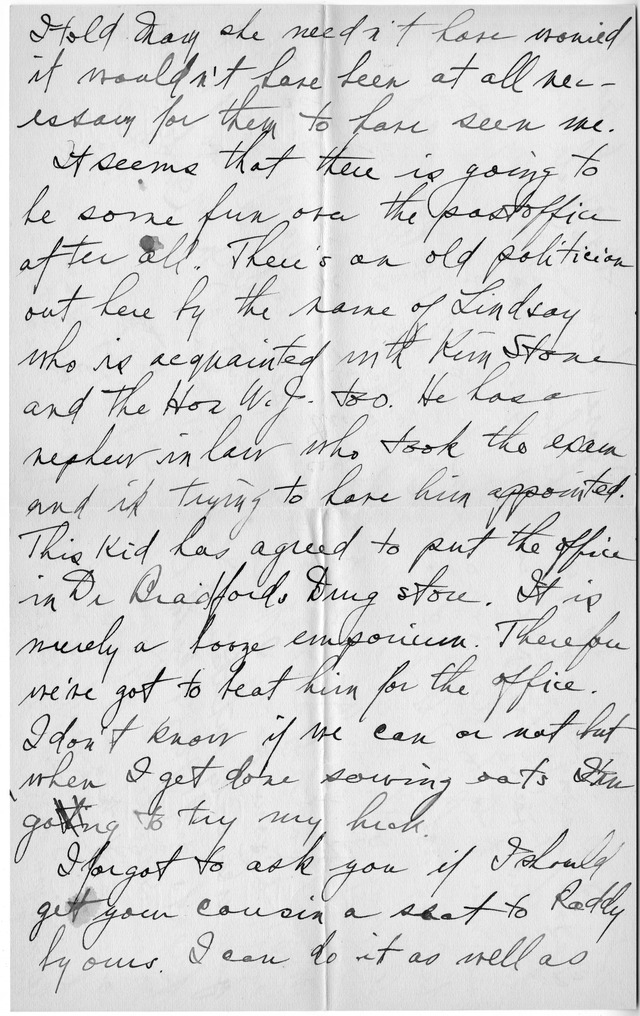 I told May she needn't have worried
it wouldn't have been at all nec-
essary for them to have seen me.
It seems that there is going to
be some fun over the postoffice
after all. There's an old politician
out here by the name of Lindsay
who is acquainted with Kim Stone
and the Hon W. J. too. He has a
nephew in law who took the exam
and is trying to have him appointed.
This Kid has agreed to put the office
in Dr Bradfords Drug store. It is
merely a booze emporium. Therefore
we've got to beat him for the office.
I don't know if we can or not but
when I get done sowing oats I'm
going to try my luck.
I forgot to ask you if I should
get your cousin a seat to Paddy
by ours. I can do it as well as